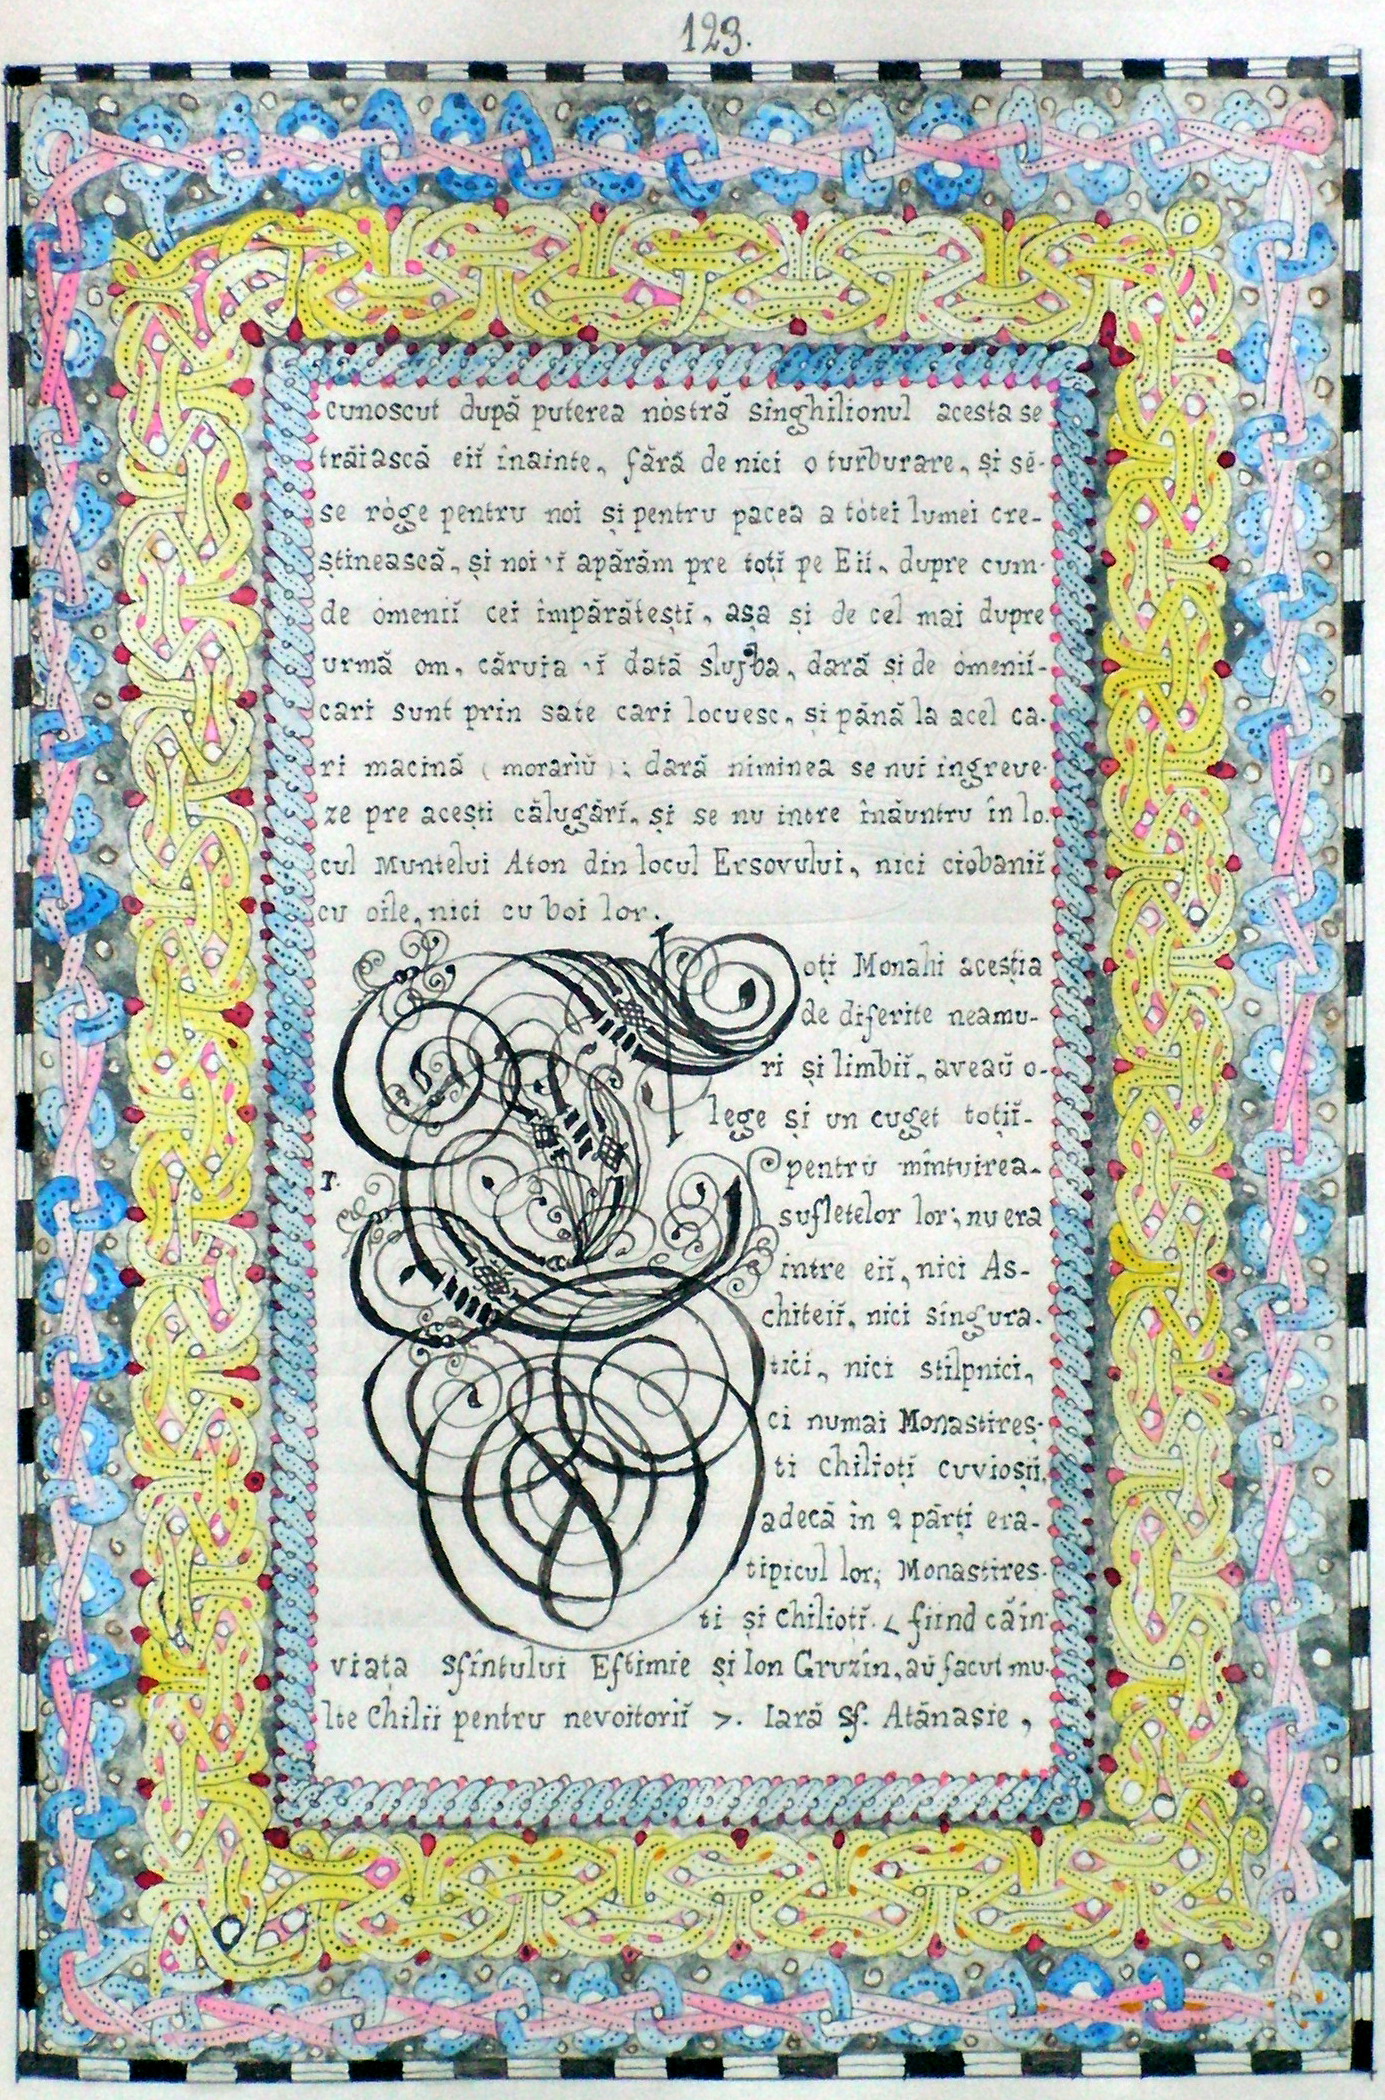 123.
cunoscut după puterea nòstră sînghilionul acesta se
trăiască eiĭ înainte, fără de nici o turburare, și sĕ-
se ròge pentru noi și pentru pacea a tòtei lumei cre-
știnească, și noi 'ĭ apărăm pre toțĭ pe Eiĭ, dupre cum-
de òmeniĭ cei împărăteștĭ, așa și de cel mai dupre
urmă om, căruia 'ĭ dată slujba, dară și de òmeniĭ-
cari sunt prin sate cari locuesc, și pănă la acel ca-
ri macină ( morariŭ ); dară niminea se nui ingreve-
ze pre acești călugărĭ, și se nu intre înăuntru în lo-
cul Muntelui Aton din locul Ersovului, nici ciobaniĭ
cu oile, nici cu boi lor.
Toți Monahi aceștia
de diferite neamu-
ri și limbiĭ, aveaŭ o-
lege și un cuget toțiĭ-
T.
pentru mîntuirea-
sufletelor lor; nu era
intre eiĭ, nici As-
chiteiĭ, nici singura-
tici, nici stîlpnici,
ci numai Monastireș-
ti chilioțĭ cuvioșiĭ,
adecă în 2 părți era-
tipicul lor; Monastires-
ti și chilioțĭ. < fiind că în
viața sfîntului Eftimie și Ion Gruzin, aŭ facut mu-
lte Chilii pentru nevoitoriĭ >. Iară sf. Atănasie,